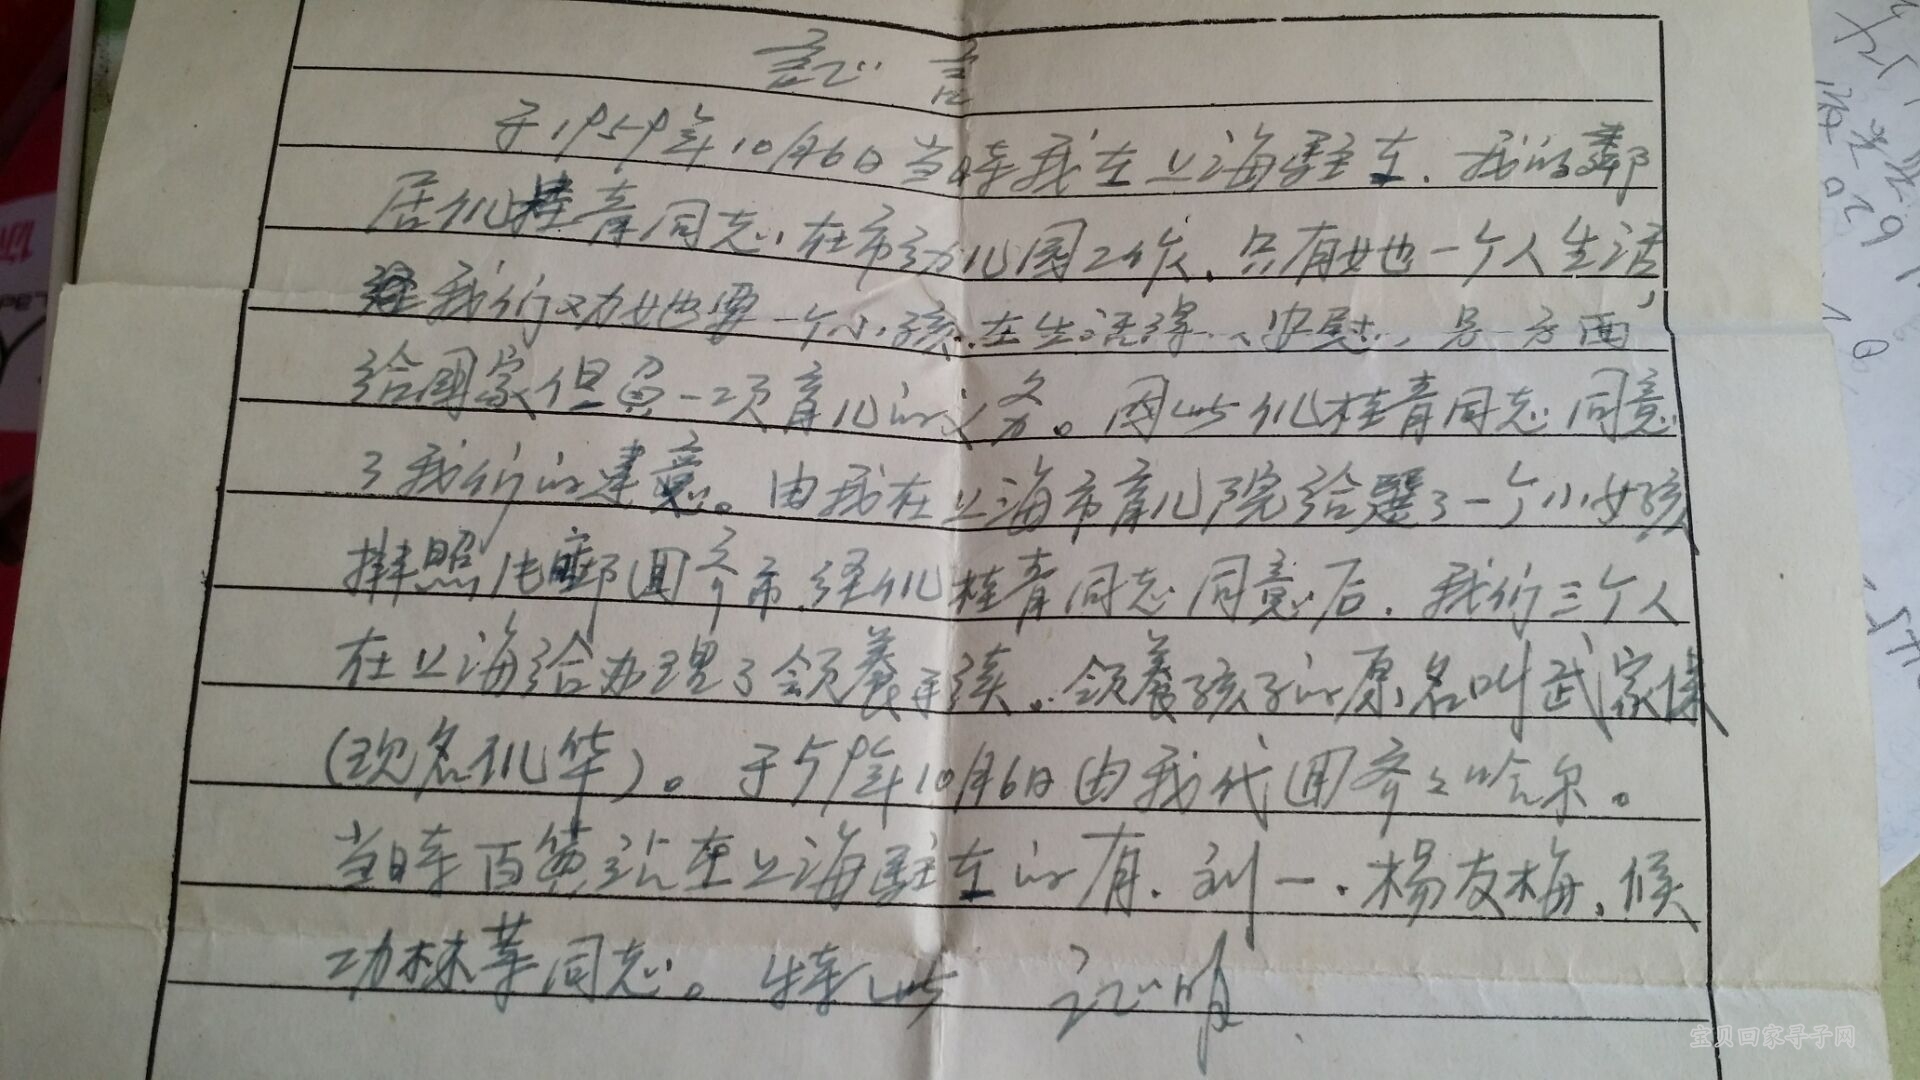 証 言
于1959年10月6日当時我在上海駐在．我的鄰
居孔桂青同志，在市幼儿園工作，只有她一个人生活，
経我们劝她要一个小孩．在生活得 安慰，另一方面
给國家但負一项育儿的义务。因此孔桂青同志同意
了我们的建意。由我在上海市育儿院给選了一个小女孩
照 郵回齐市．经孔桂青同志同意后．我们三个人
在上海给办理了领養手续。领養孩子的原名叫武家
(现名孔华)。于59年10月6日由我代回齐々哈尔。
当時百货站在上海駐在的有．刘一．楊友梅，候
功林等同志。特此 証明
宝贝回家寻子网